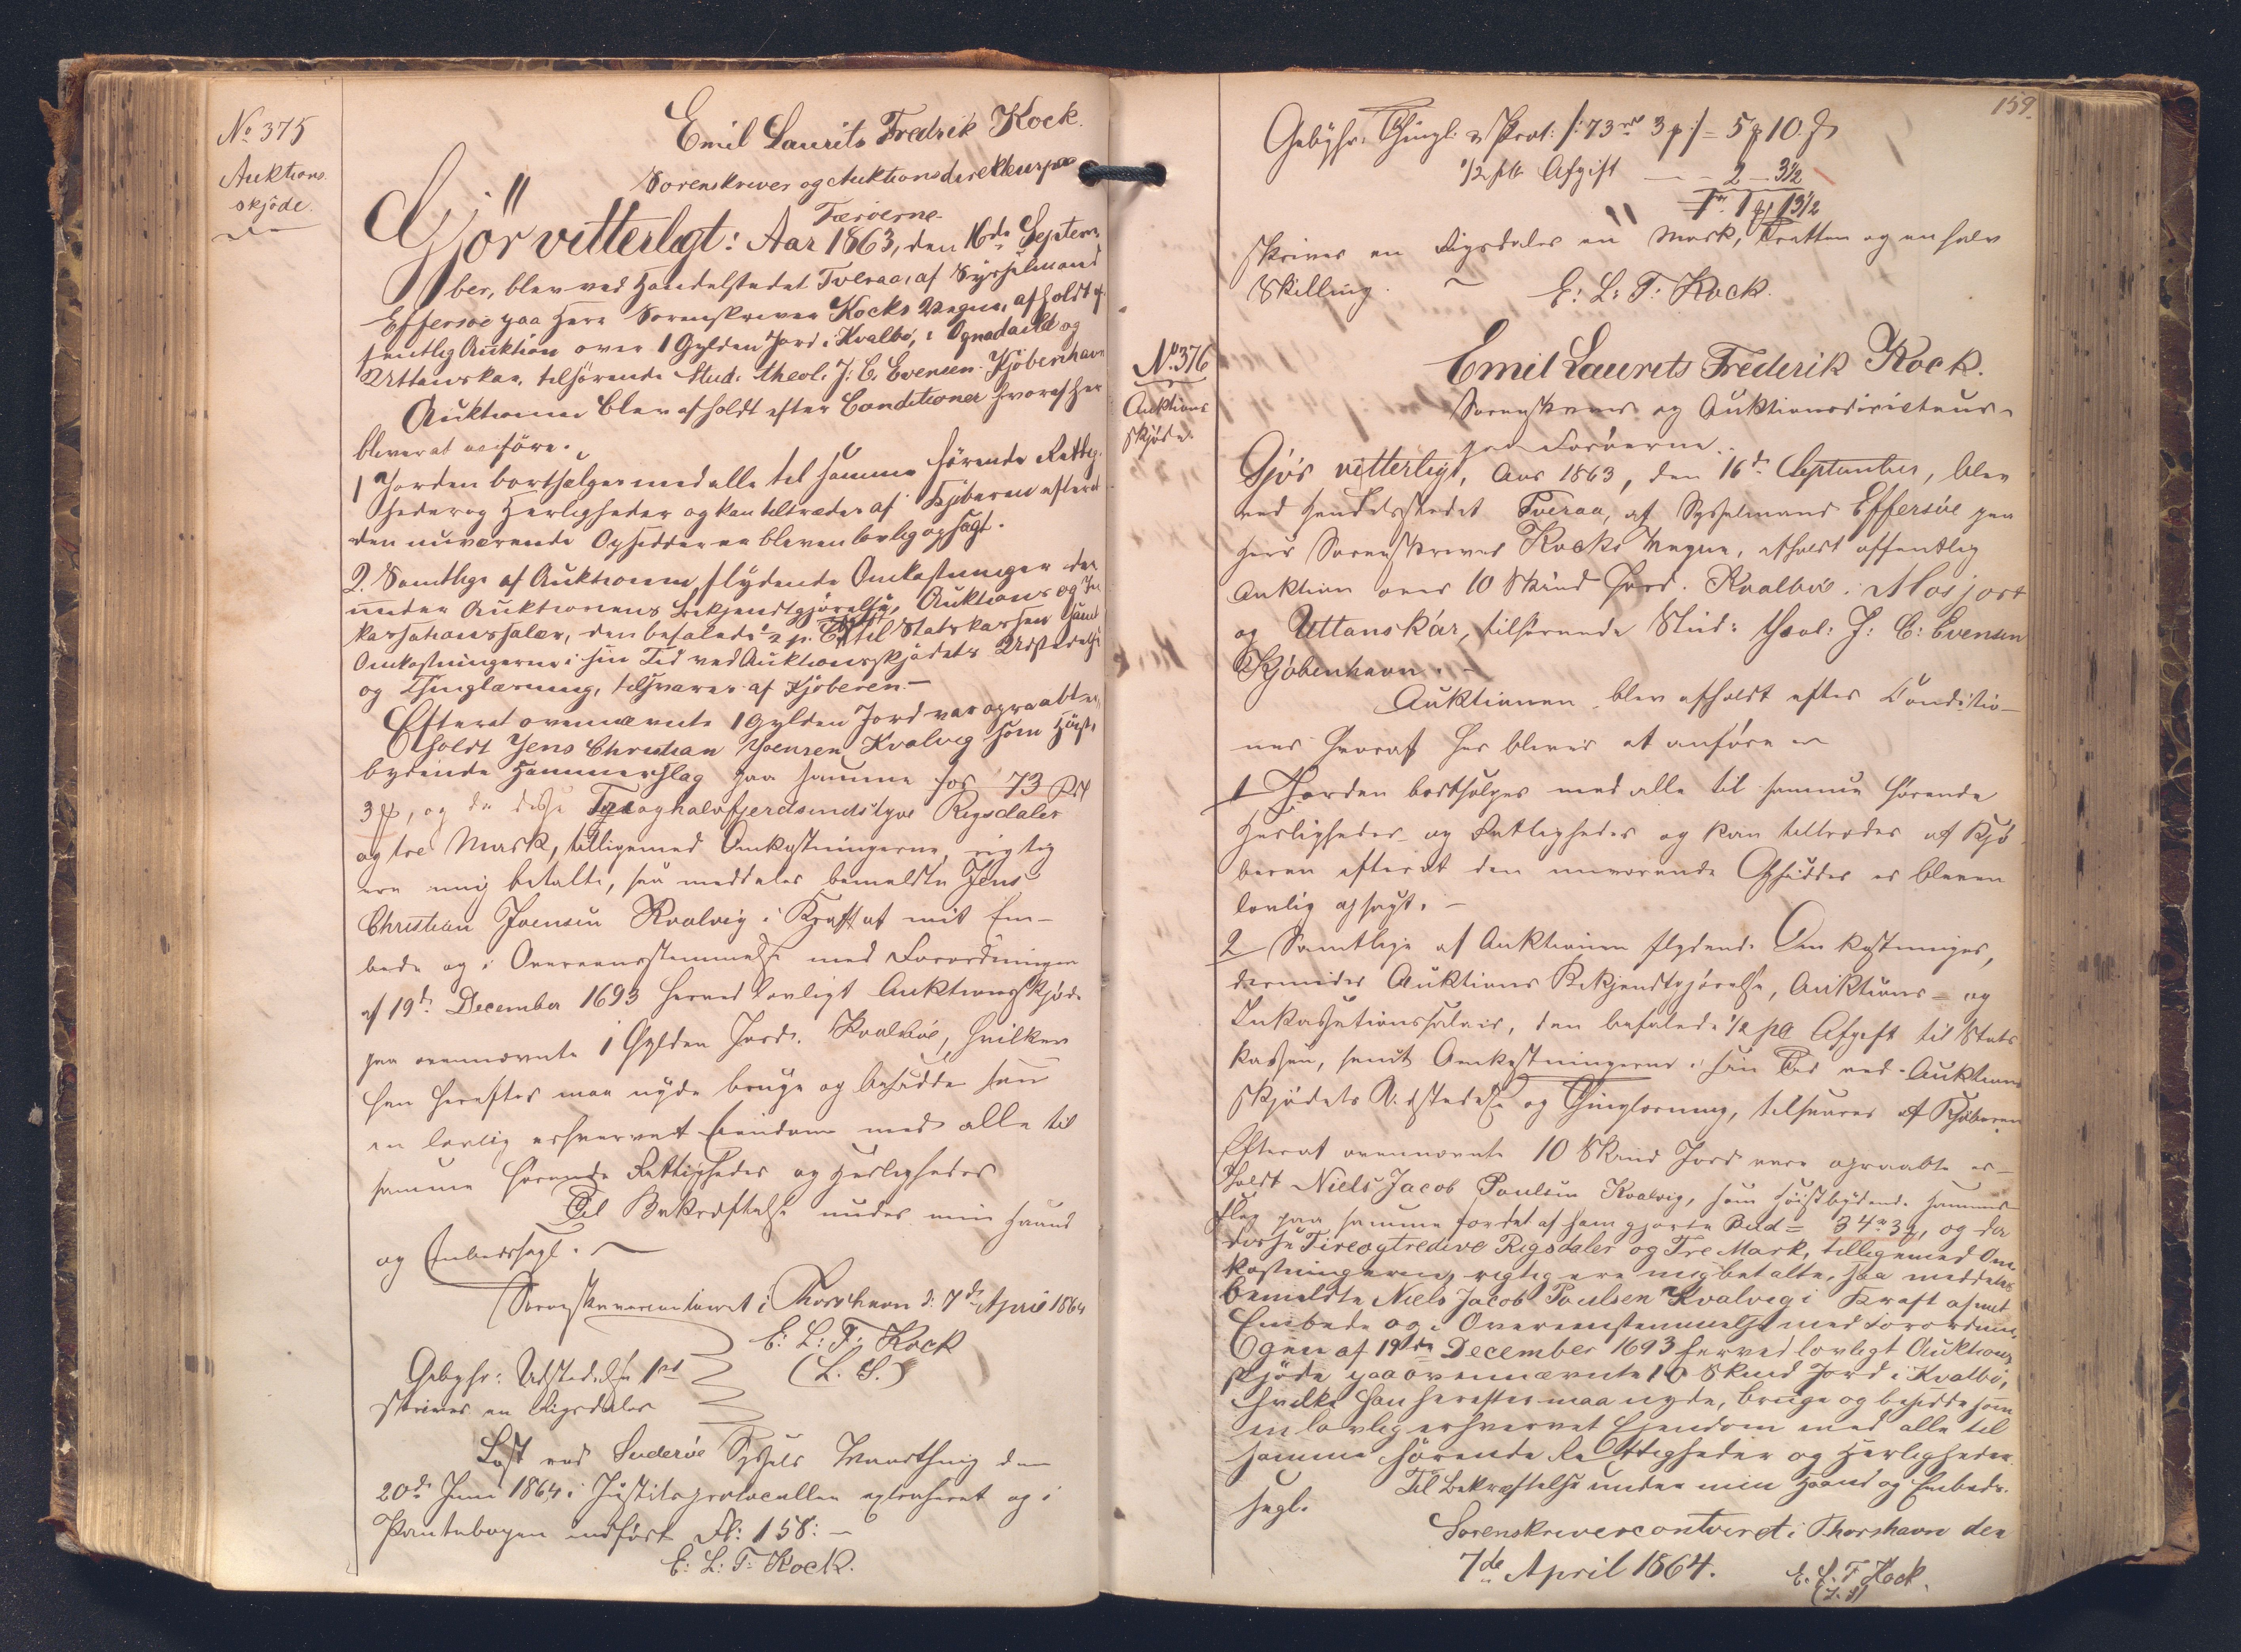 No 375
Auktions
skjöde.
Emil Laurits Fredrik Kock.
Sorenskriver og Auktionsdirekteur paa
Færöerne.
Gjör vitterligt: Aar 1863, den 16de Septem-
ber, blev ved Handelstedet Tveraa, af Sysselmand
Effersöe paa Herr Sorenskriver Kocks Vegne, afholdt of-
fentlig Auktion over 1 Gylden Jord i Kvalbö, i og
Uttanskaa, tilhörende Stud. theol. J. C. Evensen Kjöbenhavn
Auktionen blev afholdt efter Conditioner hvoraf her
bliver at anföre.
1 Jorden bortsælges med alle til samme hörende Rettig-
heder og Herligheder og kan tiltrædes af Kjöberen efterat
den nuværende Opsidder er bleven lovlig opsagt.
2. Samtlige af Auktionen flydende Omkostninger der-
under Auktionens Bekjendtgjörelse, Auktions og In-
kassationssalær, den befalede ½ p. Ct til Statskassen samt
Omkostningerne i sin Tid ved Auktionsskjödets Udstedelse
og Thinglæsning, tilsvares af Kjöberen.-
Efterat ovennævnte 1 Gylden Jord var opraabt er-
holdt Jens Christian Joensen Kvalvig som höist-
bydende Hammerslag paa samme for 73 Rd
3 ꝑ, og da disse Treoghalvfjerdsindstyve Rigsdaler
og tre Mark, tilligemed Omkostningerne rigtig
ere mig betalte, saa meddeles bemeldte Jens
Christian Joensen Kvalvig i Kraft af mit Em-
bede og i Overeensstemmelse med Forordningen
af 19de December 1693 herved lovligt Auktionsskjöde
paa ovennævnte 1 Gylden Jord i Kvalböe, hvilken
han herefter maa nyde bruge og besidde som
en lovlig erhvervet Eiendom med alle til
samme hörende Rettigheder og Herligheder
Til Bekræftelse under min Haand
og Embedssegl.
Sorenskrivercontoiret i Thorshavn d. 7de April 1864
E: L: F: Kock
(L. S.)
Gebyhr: Udstedelse 1 rd
skriver en Rigsdaler
Læst ved Suderöe Syssels Vaarthing den
20de Juni 1864 i Justitsprotocollen extraheret og i
Pantebogen indfört Fl: 158: -
E: L: F: Kock.
159.
Gebyhr: Thingl. & Prot: /: 73 rd 3 ꝑ :/ = 5 ꝑ 10 ß
1/2 pCt Afgift — - 2 — 3½
1 rd 1 ꝑ 13½
skriver en Rigsdaler en Mark, Tretten og en halv
Skilling.
E: L: F: Kock.
No 376
Auktions
skjöde.
Emil Laurits Frederik Kock.
Sorenskriver og Auktionsdirecteur
paa Færöerne.
Gjör vitterligt, Aar 1863, den 16de September, blev
ved Handelsstedet Tveraa, af Sysselmand Effersöe paa
Herr Sorenskriver Kocks Vegne, afholdt offentlig
Auktion over 10 Skind Jord i Kvalböe i Mosjort
og Uttanskár, tilhörende Stud: theol: J: C: Evensen
Kjöbenhavn. -
Auktionen blev afholdt efter Conditio-
ner hvoraf her bliver at anföre
1 Jorden bortsælges med alle til samme hörende
Herligheder og Rettigheder og kan tiltrædes af Kjö-
beren efterat den nuværende Opsidder er bleven
lovlig opsagt. -
2 Samtlige af Auktionen flydende Omkostninger,
derunder Auktions Bekjendtgjörelse, Auktions- og
Inkassationssalair, den befalede 1/2 pCt Afgift til Stats
kassen, samt Omkostningerne i sin Tid ved Auktions
skjödets Udstedelse og Thinglæsning, tilsvares af Kjöberen
Efterat ovennævnte 10 Skind Jord vare opraabte er-
holdt Niels Jacob Poulsen Kvalvig, som höistbydende Hammer-
slag paa samme for det af ham gjorte Bud = 34 rd 3 ꝑ, og da
disse Fireogtredive Rigsdaler og Tre Mark, tilligemed Om-
kostningerne, rigtig ere mig betalte, saa meddeles
bemeldte Niels Jacob Poulsen Kvalvig i Kraft af mit
Embede og i Overeenstemmelse med Forordnin-
gen af 19de December 1693 herved lovligt Auktions
skjöde paa ovennævnte 10 Skind Jord i Kvalbö,
hvilke han herefter maa nyde, bruge og besidde som
en lovlig erhvervet Ejendom med alle til
samme hörende Rettigheder og Herligheder.
Til Bekræftelse under min Haand og Embeds-
segl.
Sorenskrivercontoiret i Thorshavn den
7de April 1864.
E. L. F. Kock.
(L. S)